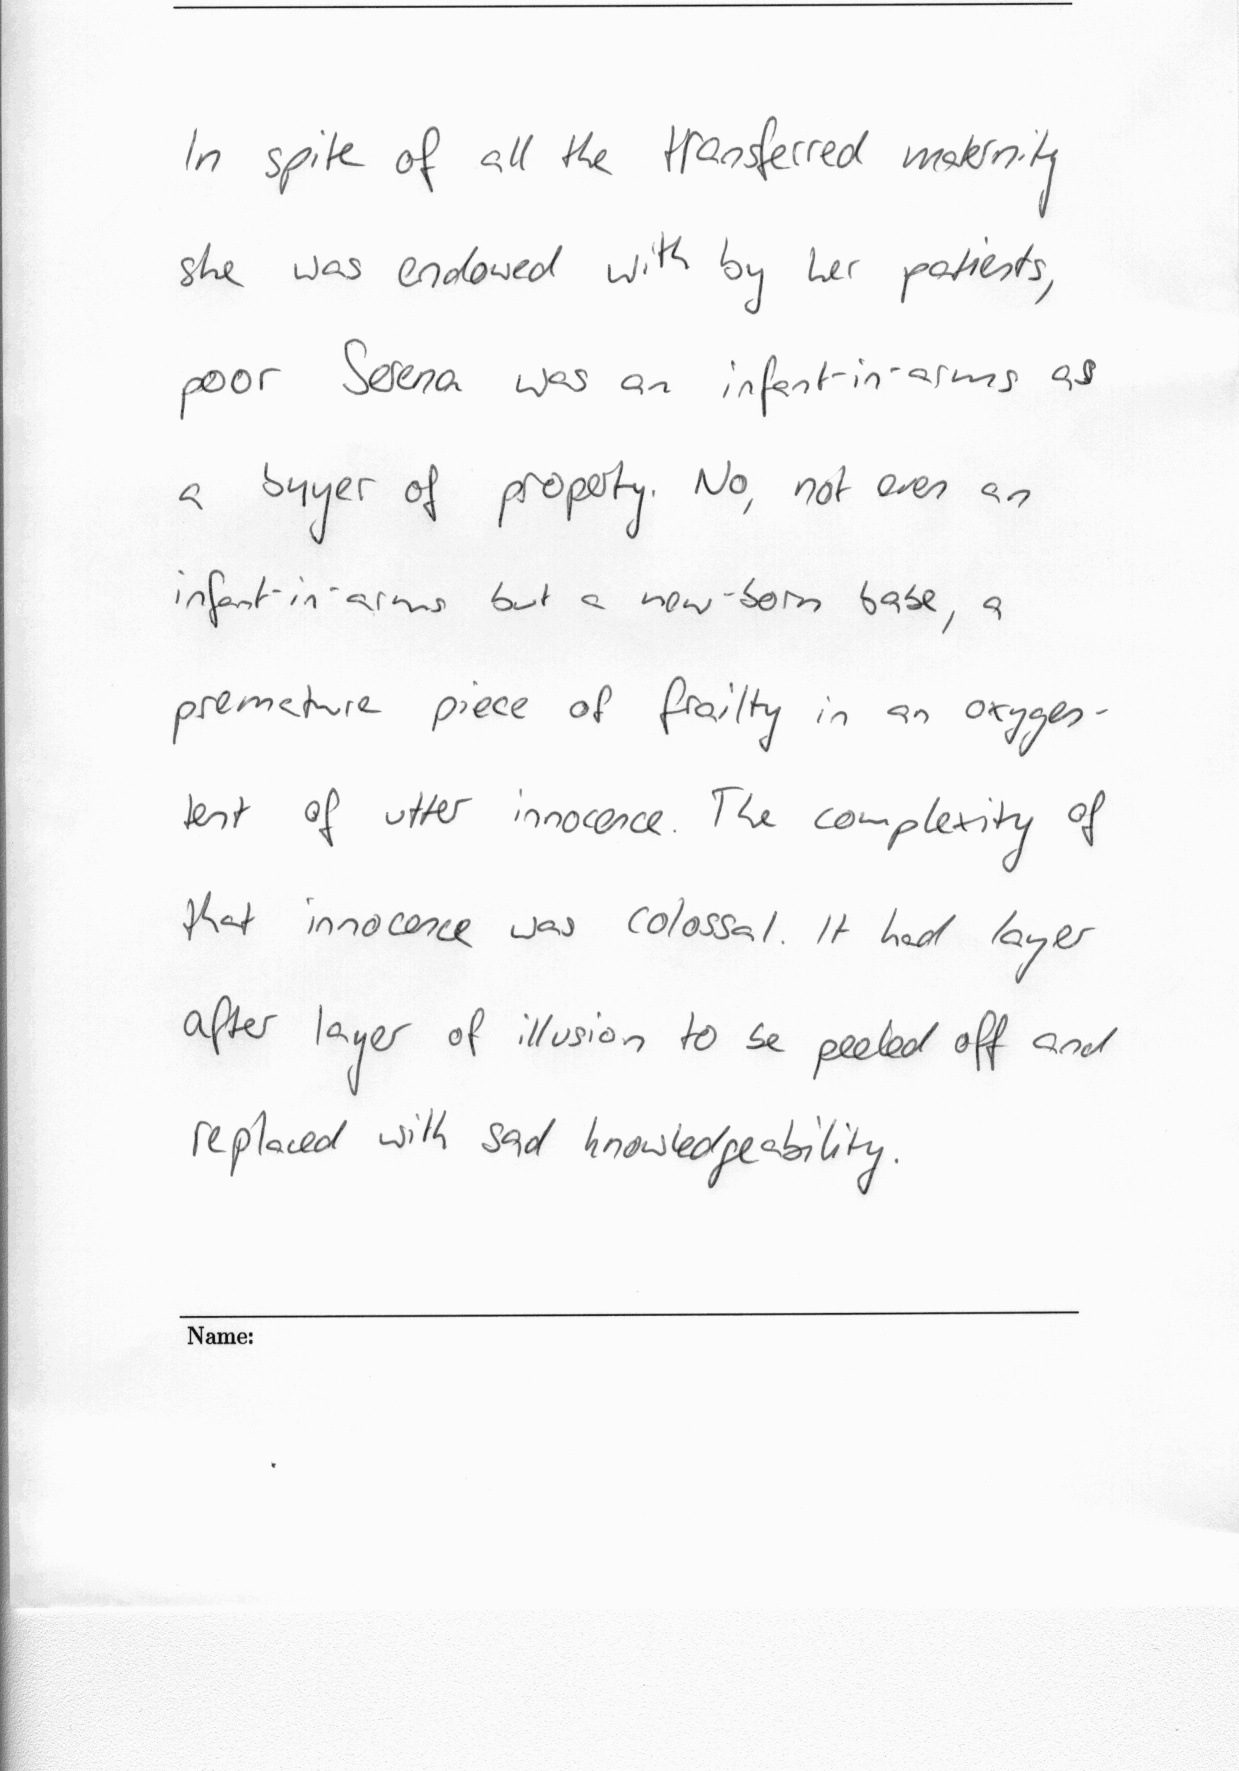 In spite of all the transferred maternity
she was endowed with by her patients,
poor Serena was an infant-in-arms as
a buyer of property. No, not even an
infant-in-arms but a new-born babe, a
premature piece of frailty in an oxygen-
tent of utter innocence. The complexity of
that innocence was colossal. It had layer
after layer of illusion to be peeled off and
replaced with sad knowledgeability.
Name: